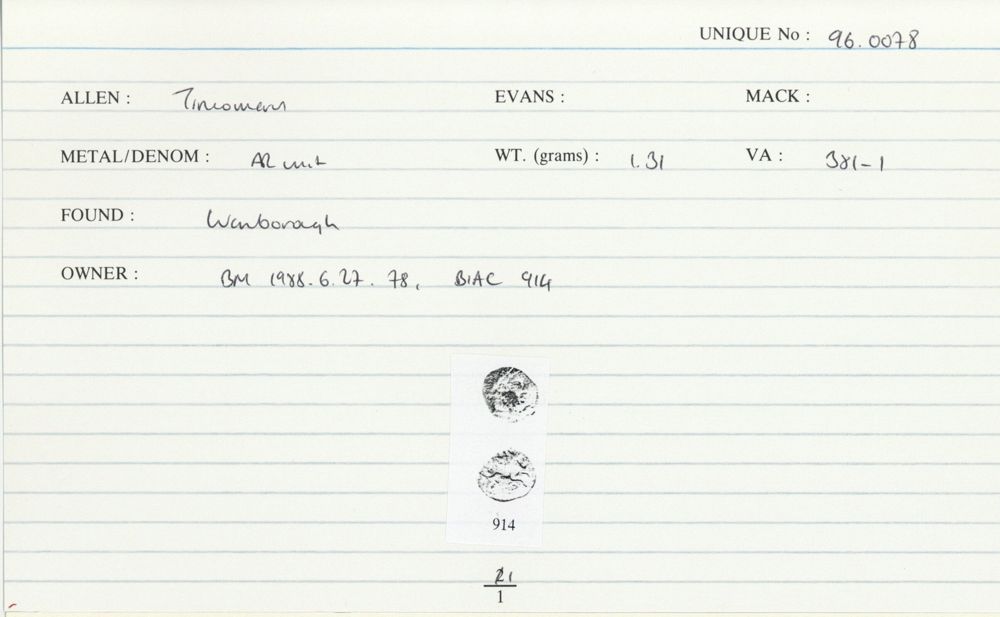 UNIQUE No : 96.0078
ALLEN : Tincomarus EVANS : MACK :
METAL/DENOM : AR unit WT. (grams) : 1.31 VA : 381-1
FOUND : Wanborough
OWNER : BM 1988.6.27.78, BIAC 914
914
1